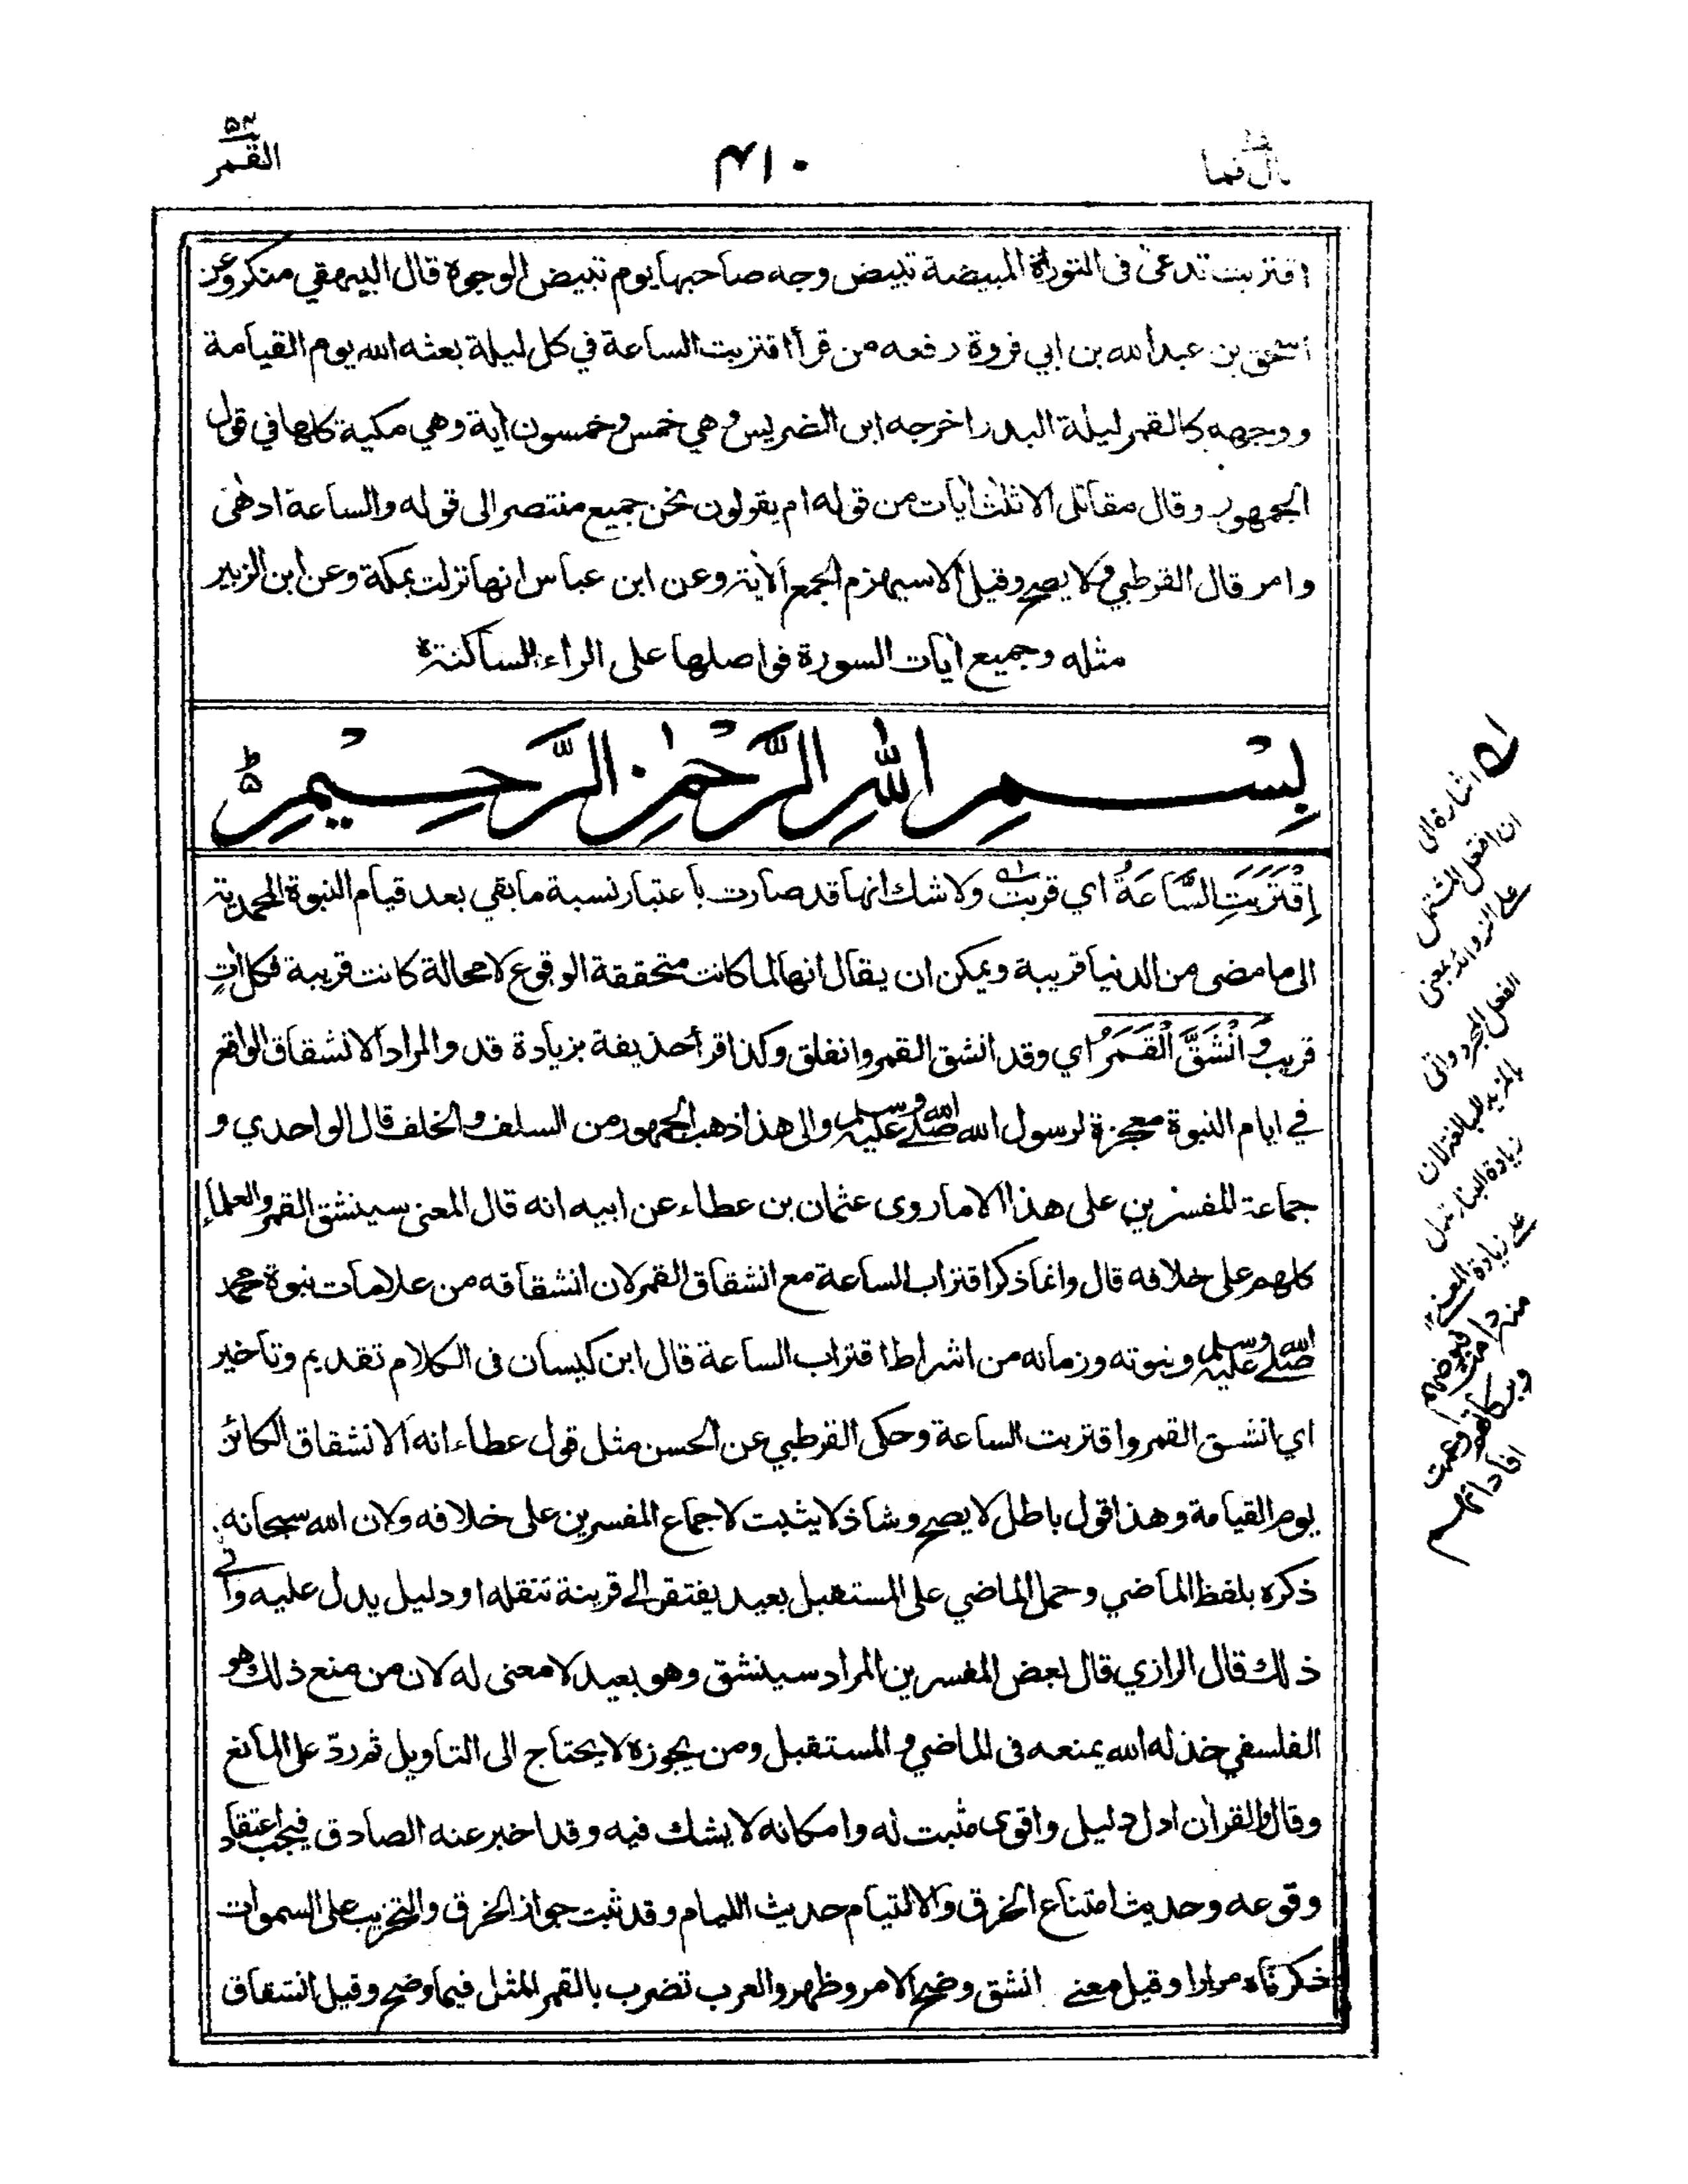 القمر ۵۴
۴۱۰
قال فما
اقتربت تدعى فى التوراة المبيضة تبيض وجه صاحبها يوم تبيض الوجوة قال البيهقي منكر وعن
اسحق بن عبد الله بن ابي فروة رفعه من قرأ اقتربت الساعة في كل ليلة بعثه الله يوم القيامة
ووجهه كالقمر ليلة البدر اخرجه ابن الضريس وهي خمس وخمسون اٰية وهي مكية كلها في قول
الجمهور وقال مقاتل الا ثلٰث اٰيات من قوله ام يقولون نحن جميع منتصر الى قوله والساعة ادهىٰ
وامر قال القرطبي ولا يصح وقيل الا سيهزم الجمع الاٰية وعن ابن عباس انها نزلت بمكة وعن ابن الزبير
مثله وجميع اٰيات السورة فواصلها على الراء الساكنة
بِسْمِ اللّٰهِ الرَّحْمٰنِ الرَّحِيْمِ
اِقْتَرَبَتِ السَّاعَةُ اي قربت ولا شك انها قد صارت باعتبار نسبة ما بقي بعد قيام النبوة المحمدية
الى ما مضى من الدنيا قريبة ويمكن ان يقال انها لما كانت متحققة الوقوع لا محالة كانت قريبة فكل اٰتٍ
قريب وَانْشَقَّ الْقَمَرُ اي وقد انشق القمر وانفلق وكذا قرأ حذيفة بزيادة قد والمراد الانشقاق الواقع
في ايام النبوة معجزة لرسول الله صلى الله عليه وسلم والى هذا ذهب الجمهور من السلف والخلف قال الواحدي و
جماعة المفسرين على هذا الا ما روى عثمان بن عطاء عن ابيه انه قال المعنى سينشق القمر والعلماء
كلهم على خلافه قال وانما ذكر اقتراب الساعة مع انشقاق القمر لان انشقاقه من علامات نبوة محمد
صلى الله عليه وسلم ونبوته وزمانه من اشراط اقتراب الساعة قال ابن كيسان فى الكلام تقديم وتأخير
اي انشق القمر واقتربت الساعة وحكى القرطبي عن الحسن مثل قول عطاء انه الانشقاق الكائن
يوم القيامة وهذا قول باطل لا يصح وشاذ لا يثبت لاجماع المفسرين على خلافه ولان الله سبحانه
ذكره بلفظ الماضي وحمل الماضي على المستقبل بعيد يفتقر الى قرينة تنقله او دليل يدل عليه وانى
ذلك قال الرازي قال بعض المفسرين المراد سينشق وهو بعيد لا معنى له لان من منع ذلك هو
الفلسفي خذله الله يمنعه فى الماضي والمستقبل ومن يجوزه لا يحتاج الى التاويل ثم ردّ على المانع
وقال والقراٰن ادل دليل واقوى مثبت له وامكانه لا يشك فيه وقد اخبر عنه الصادق فيجب اعتقاد
وقوعه وحديث امتناع الخرق والالتيام حديث اللئام وقد ثبت جواز الخرق والتخريب على السموات
ذكرناه مرارا وقيل معنى انشق وضح الامر وظهر والعرب تضرب بالقمر المثل فيما وضح وقيل انشقاق
اشارة الى
ان افتعل المشتمل
على الزوائد بمعنى
الفعل المجرد واتى
بالمزيد للمبالغة لان
زيادة البناء تدل
على زيادة المعنى
منه دامت فيوضهم
وبركاتهم وعمت
افاداتهم